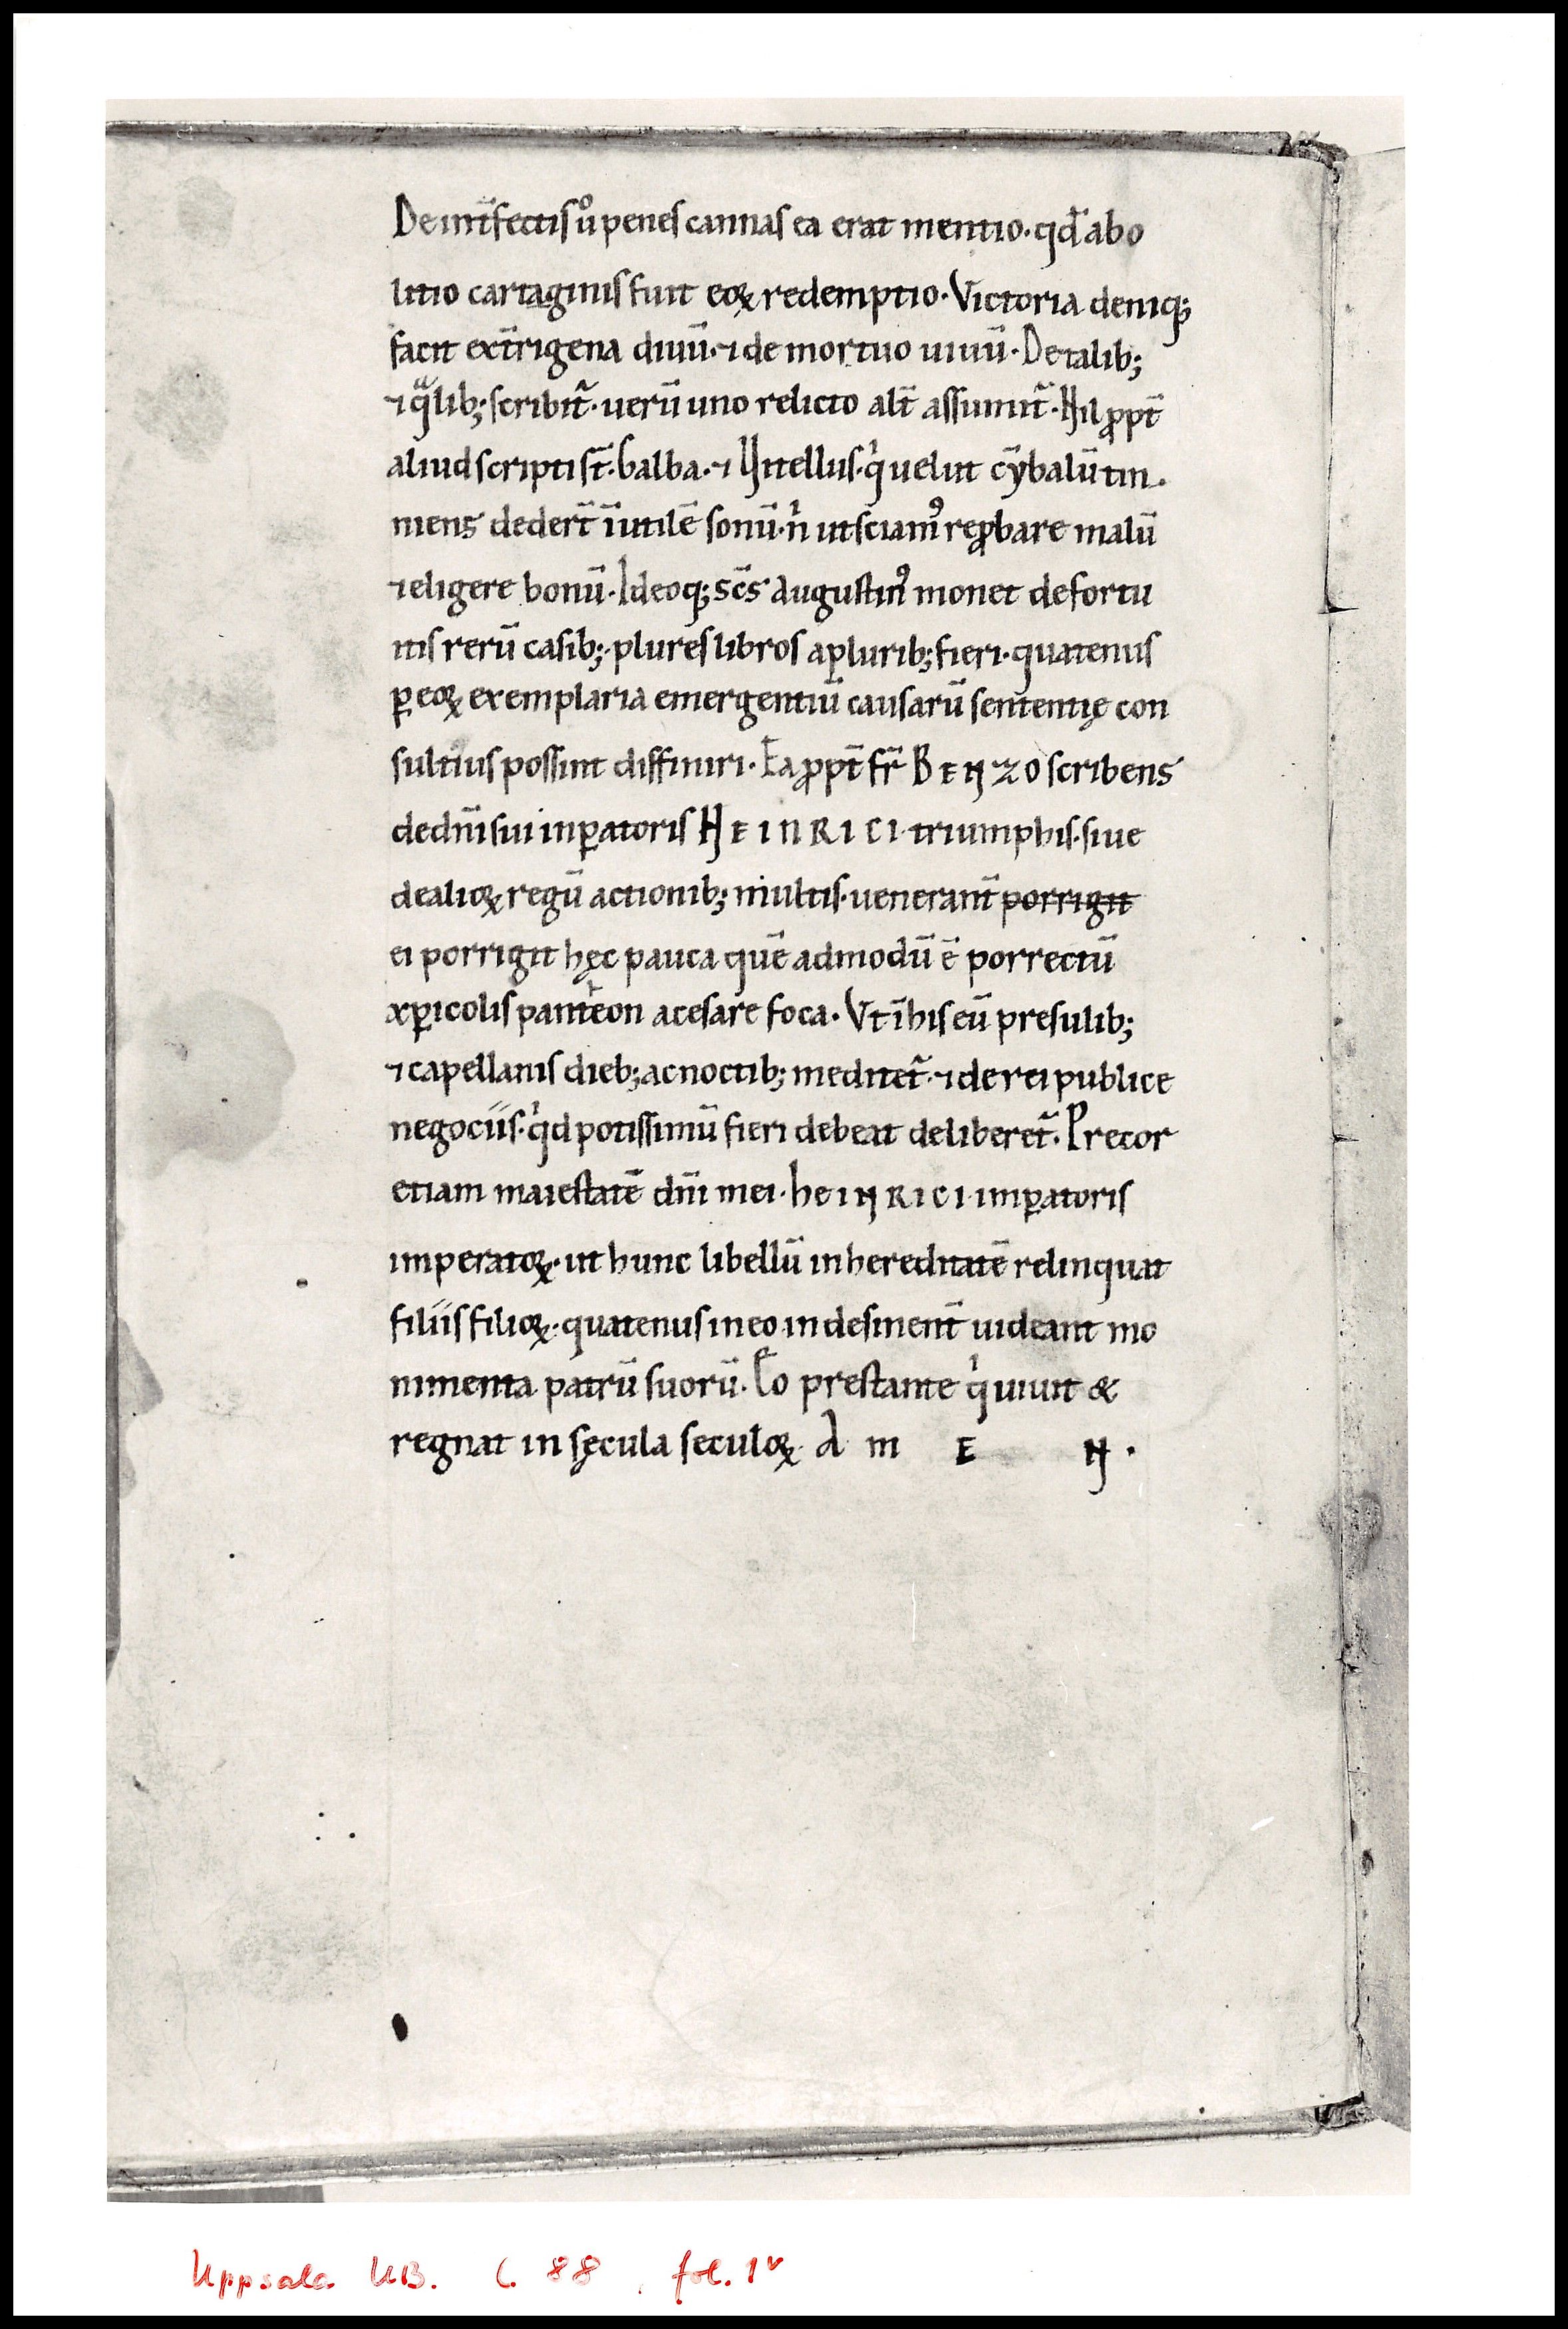 De int̄fectis ů penes cannas ea erat mentio· qd̄ abo
litio cartaginis fuit eoꝝ redemptio· Victoria deniq;
facit ext̄rigena diuū· ⁊ de mortuo uiuū· De talib;
⁊ qͣlib; scribit᷑· uerū uno relicto alt̄ assumit᷑· Nil ꝓpt̄
aliud scripti st̄· balba· ⁊ Nitellus· qͥ uelut cȳbalū tin·
niens dedert̄ īutilē sonū· nͥ ut sciamꝰ reꝓbare malū
⁊ eligere bonū· Ideoq; scs̄ Augustinꝰ monet de fortu
itis rerū casib;· plures libros a plurib; fieri· quatenus
ꝑ eoꝝ exemplaria emergentiū causarū sententię con
sultius possint diffiniri· Ea ꝓpt̄ fr̄ BENZO scribens
de dn̄i sui inꝑatoris HEINRICI· triumphis· siue
de alioꝝ regū actionib; multis· uenerant̄ porrigit
ei porrigit hęc pauca quē admodū ē porrectū
xp̄icolis panteon a cesare foca· Vt ī his cū presulib;
⁊ capellanis dieb; ac noctib; meditet᷑· ⁊ de rei publice
negociis· qͥd potissimū fieri debeat deliberet᷑· Precor
etiam maiestatē dn̄i mei· heinRICI· imꝑatoris
imperatoꝝ· ut hunc libellū in hereditatē relinquat
filiis filioꝝ· quatenus in eo indesinent̄ uideant mo
nimenta patrū suorū· Eo prestante qͥ uiuit &
regnat in sęcula seculoꝝ· A m E N ·
Uppsala UB. C. 88, fol. 1v